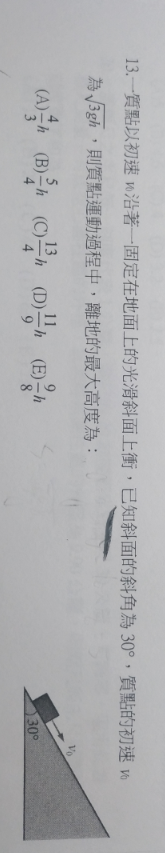 13.一質點以初速 v₀沿著一固定在地面上的光滑斜面上衝，已知斜面的斜角為 30°，質點的初速 v₀
為 √3gh ，則質點運動過程中，離地的最大高度為：
(A) 4/3 h (B) 5/4 h (C) 13/4 h (D) 11/9 h (E) 9/8 h
v₀
30°